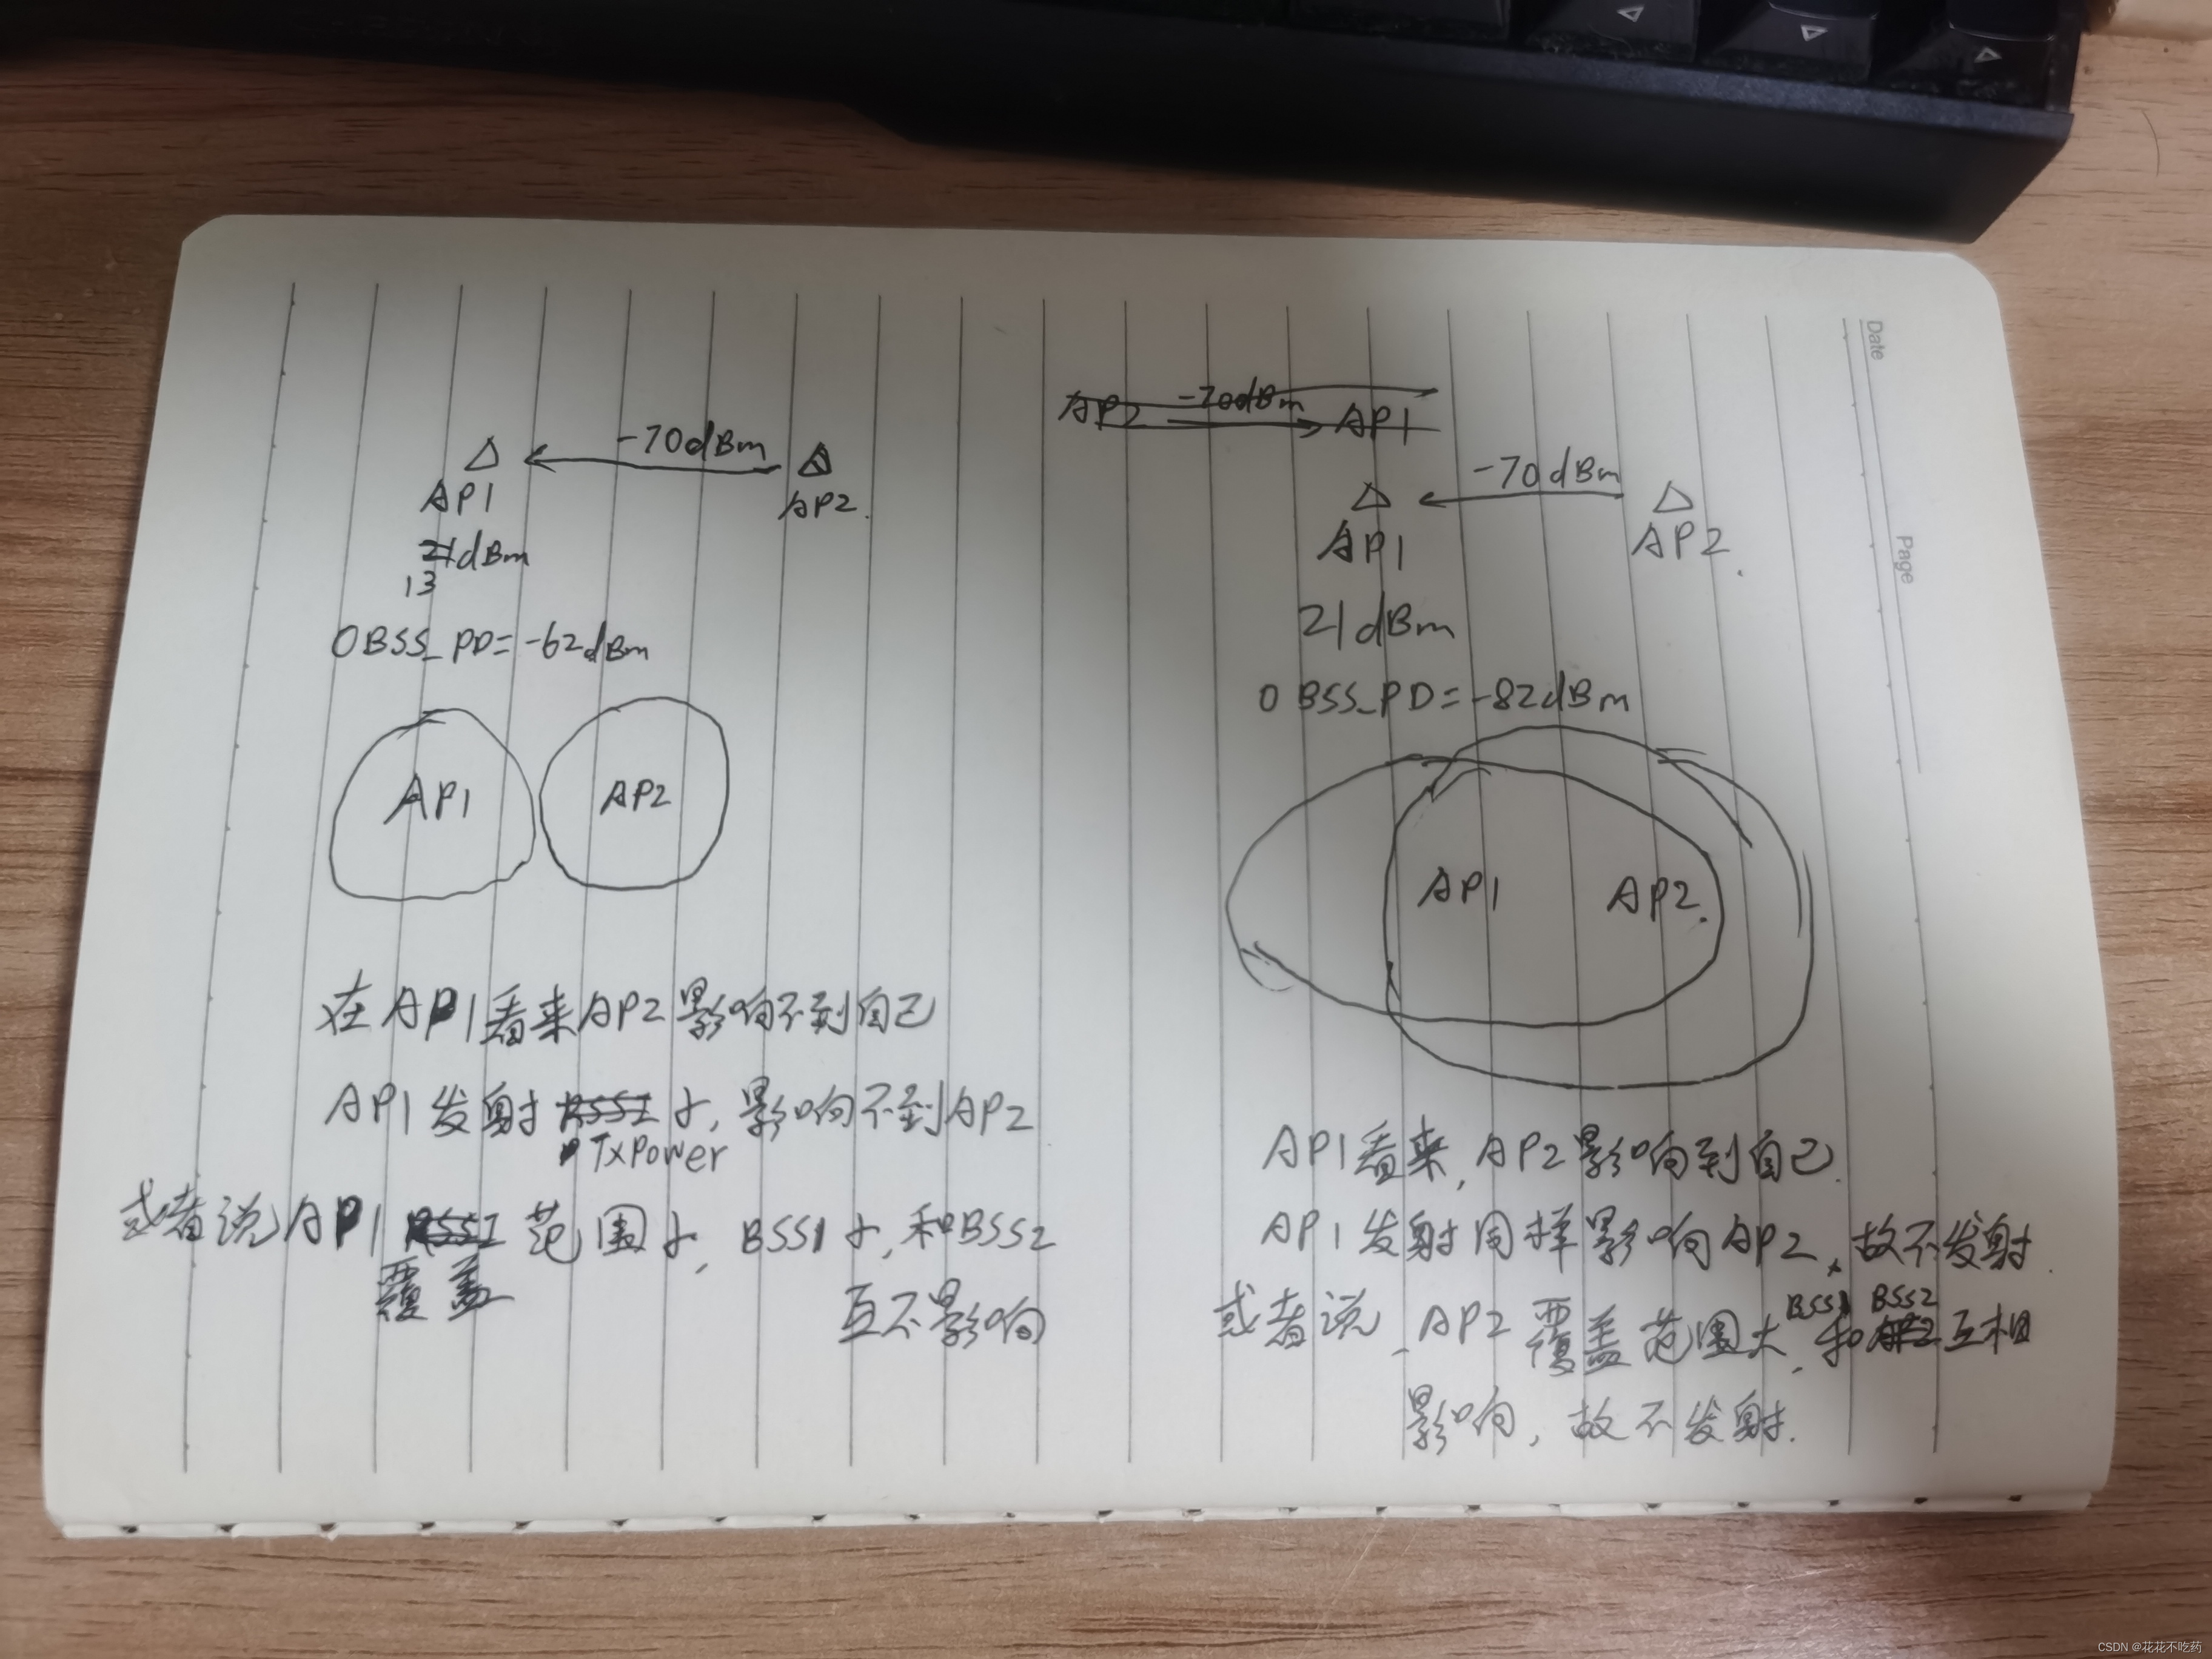 -70dBm
AP1
AP2.
21dBm
13
OBSS_PD=-62dBm
AP1
AP2
在AP1看来AP2影响不到自己
AP1发射RSSI小,影响不到AP2
TxPower
或者说AP1 RSSI 范围小, BSS1小,和BSS2
覆盖
互不影响
AP2 -70dBm AP1
-70dBm
AP1
AP2.
21dBm
OBSS_PD=-82dBm
AP1
AP2.
AP1看来,AP2影响到自己.
AP1发射同样影响AP2,故不发射.
BSS1 BSS2
或者说,AP2覆盖范围大,和AP2互相
影响,故不发射.
Date
Page
CSDN @花花不吃药